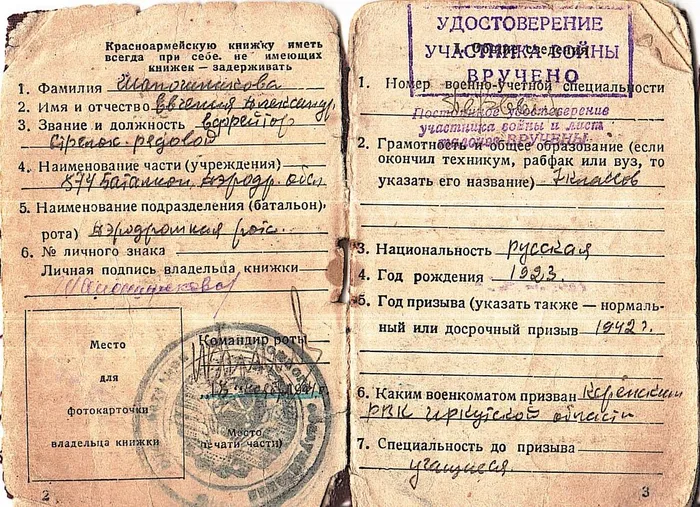 Красноармейскую книжку иметь
всегда при себе. не имеющих
книжек — задерживать
1. Фамилия Шапошникова
2. Имя и отчество Евгения Александр.
3. Звание и должность ефрейтор
стрелок рядовой
4. Наименование части (учреждения)
874 Батальон аэродр. обсл
5. Наименование подразделения (батальон,
рота) Аэродромная рота
6. № личного знака
Личная подпись владельца книжки
Шапошникова
Место
для
фотокарточки
владельца книжки
Командир роты
Место
печати части)
2
УДОСТОВЕРЕНИЕ
УЧАСТНИКА ВОЙНЫ
ВРУЧЕНО
I. Общие сведения
1. Номер военно-учетной специальности
Постоянное удостоверение
участника войны и лист
ВРУЧЕНЫ
2. Грамотность и общее образование (если
окончил техникум, рабфак или вуз, то
указать его название) 7 классов
3. Национальность русская
4. Год рождения 1923.
5. Год призыва (указать также — нормаль-
ный или досрочный призыв 1942 г.
6. Каким военкоматом призван Киренским
РВК Иркутской области
7. Специальность до призыва
учащиеся
3